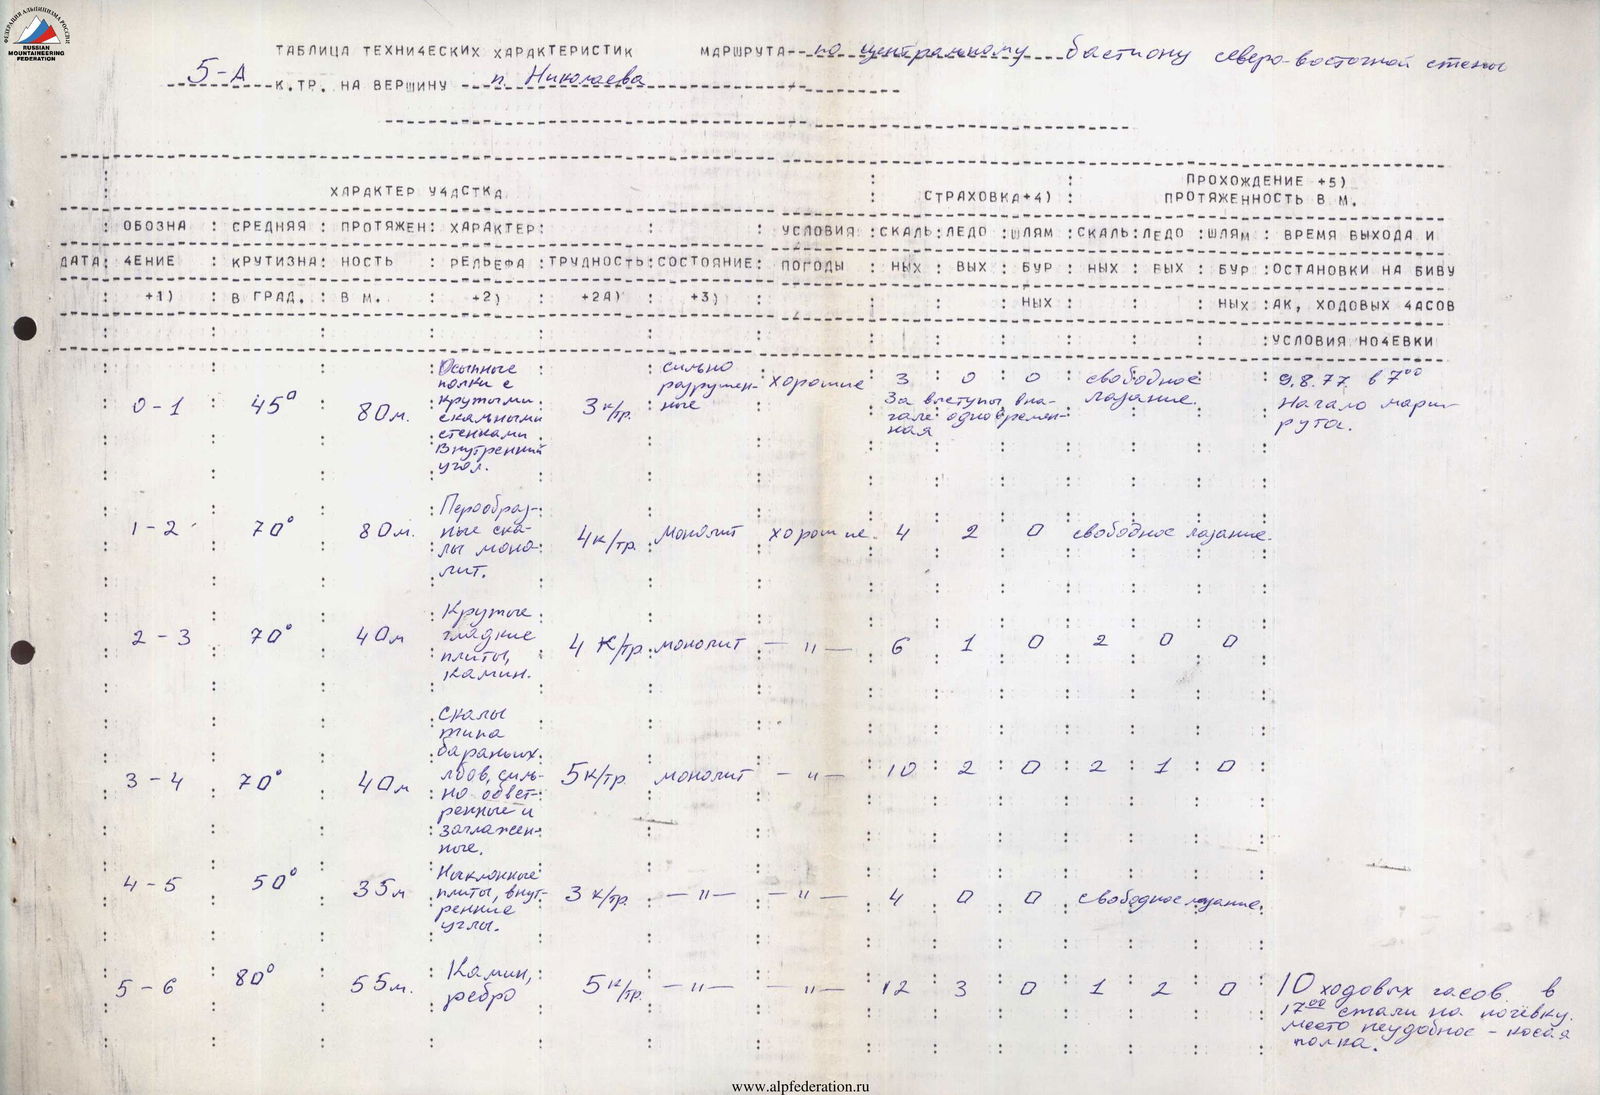 ФЕДЕРАЦИЯ АЛЬПИНИЗМА РОССИИ
RUSSIAN
MOUNTAINEERING
FEDERATION
ТАБЛИЦА ТЕХНИ4ЕСКИХ ХАРАКТЕРИСТИК МАРШРУТА--по центральному бастиону северо-восточной стены
5-А К.ТР. НА ВЕРШИНУ п. Николаева
ХАРАКТЕР У4АСТКА СТРАХОВКА+4) ПРОХОЖДЕНИЕ +5)
ПРОТЯЖЕННОСТЬ В М.
ОБОЗНА СРЕДНЯЯ ПРОТЯЖЕН ХАРАКТЕР УСЛОВИЯ СКАЛЬ ЛЕДО ШЛЯМ СКАЛЬ ЛЕДО ШЛЯМ ВРЕМЯ ВЫХОДА И
ДАТА 4ЕНИЕ КРУТИЗНА НОСТЬ РЕЛЬЕФА ТРУДНОСТЬ СОСТОЯНИЕ ПОГОДЫ НЫХ ВЫХ БУР НЫХ ВЫХ БУР ОСТАНОВКИ НА БИВУ
+1) В ГРАД. В М. +2) +2А) +3) НЫХ НЫХ АК, ХОДОВЫХ 4АСОВ
УСЛОВИЯ НО4ЕВКИ
0-1 45° 80м. Осыпные
полки с
крутыми
скальными
стенками
Внутренний
угол. 3 к/тр. сильно
разрушен-
ные хорошие 3 0 0
За выступы, вна-
чале одновремен-
ная свободное
лазание. 9.8.77. в 7⁰⁰
Начало марш-
рута.
1-2 70° 80м. Перообраз-
ные ска-
лы моно-
лит. 4к/тр. монолит хорошие. 4 2 0 свободное лазание.
2-3 70° 40м Крутые
гладкие
плиты,
камин. 4 К/тр. монолит — " — 6 1 0 2 0 0
3-4 70° 40м скалы
типа
бараньих
лбов, силь-
но обвет-
ренные и
заглажен-
ные. 5к/тр. монолит — " — 10 2 0 2 1 0
4-5 50° 35м Наклонные
плиты, внут-
ренние
углы. 3 к/тр. — " — — " — 4 0 0 свободное лазание.
5-6 80° 55м. Камин,
ребро 5к/тр. — " — — " — 12 3 0 1 2 0 10 ходовых часов. в
17⁰⁰ стали на ночёвку.
место неудобное - косая
полка.
www.alpfederation.ru